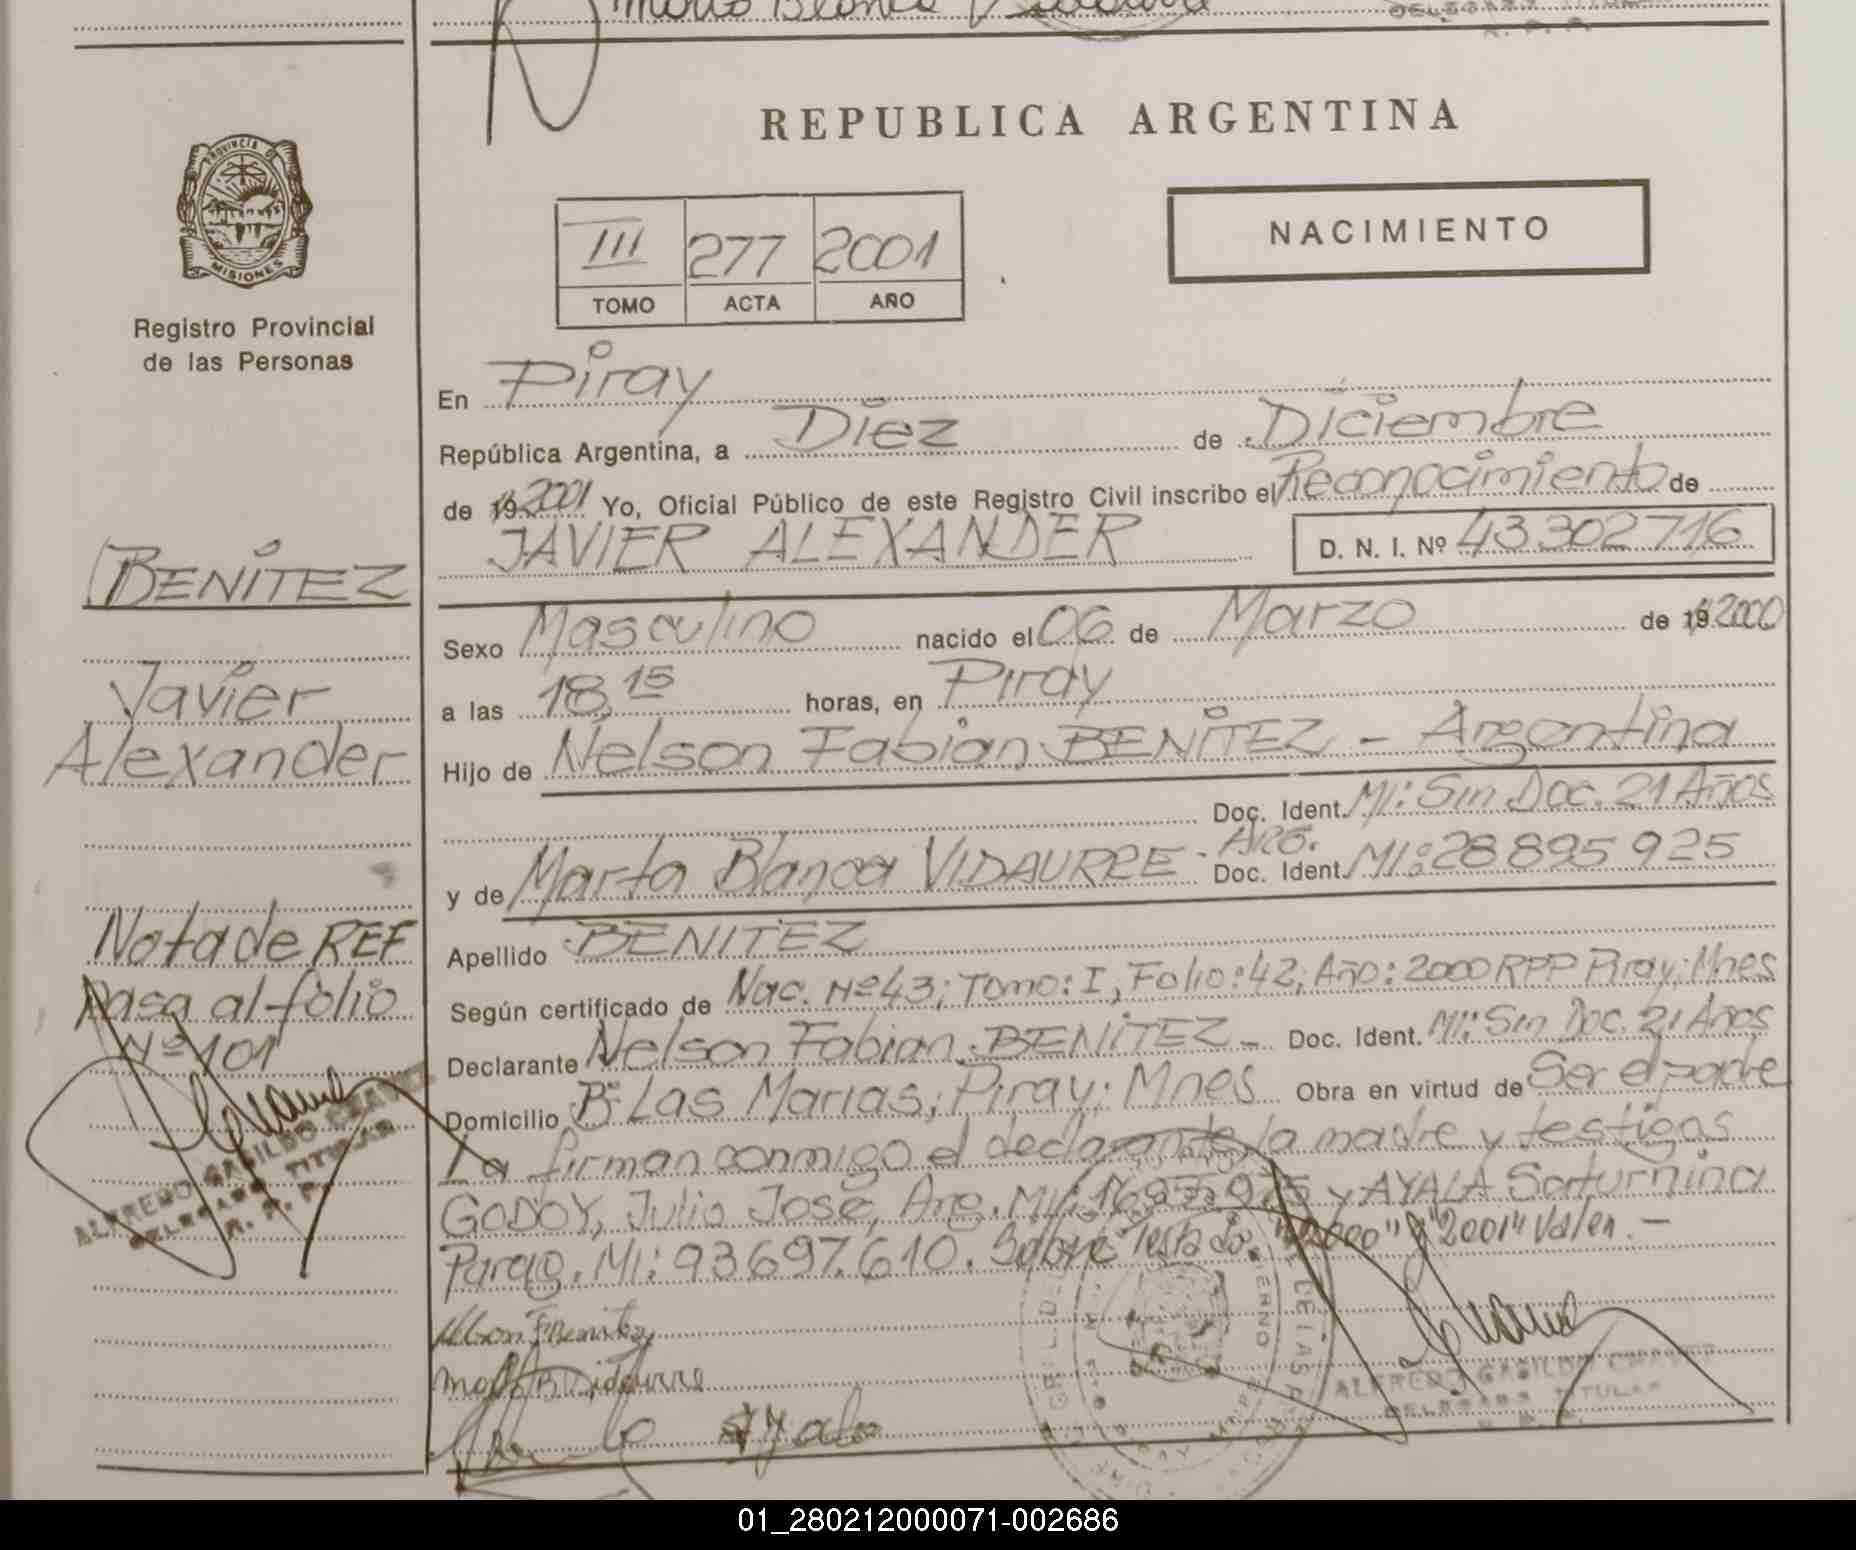 REPUBLICA ARGENTINA
PROVINCIA DE
MISIONES
Registro Provincial
de las Personas
III 277 2001
TOMO ACTA AÑO
NACIMIENTO
En Piray
República Argentina, a Diez de Diciembre
de 19 2001 Yo, Oficial Público de este Registro Civil inscribo el Reconocimiento de
JAVIER ALEXANDER D. N. I. Nº 43302716
BENITEZ
Javier
Alexander
Sexo Masculino nacido el 06 de Marzo de 19 2000
a las 18,15 horas, en Piray
Hijo de Nelson Fabian BENITEZ - Argentina
Doc. Ident. MI: Sin Doc. 21 Años
y de Marta Blanca VIDAURRE - ARG. Doc. Ident. MI: 28895925
Apellido BENITEZ
Según certificado de Nac. Nº 43; Tomo: I, Folio: 42; Año: 2000 RPP Piray; Mnes
Declarante Nelson Fabian BENITEZ - Doc. Ident. MI: Sin Doc. 21 Años
Domicilio Bº Las Marias; Piray; Mnes Obra en virtud de Ser el padre
La firman conmigo el declarante, la madre y testigos
GODOY, Julio José, Arg. MI: y AYALA Saturnina
Parag. MI: 93697.610. Sobre Testado. "2000" y "2001" Valen. -
Nota de REF
pasa al folio
Nº 101
ALFREDO GASILDO CHAVEZ
DELEGADO TITULAR
R. P. P.
Nelson F Benitez
Ayala
ALFREDO GASILDO CHAVEZ
DELEGADO TITULAR
R. P. P.
01_280212000071-002686